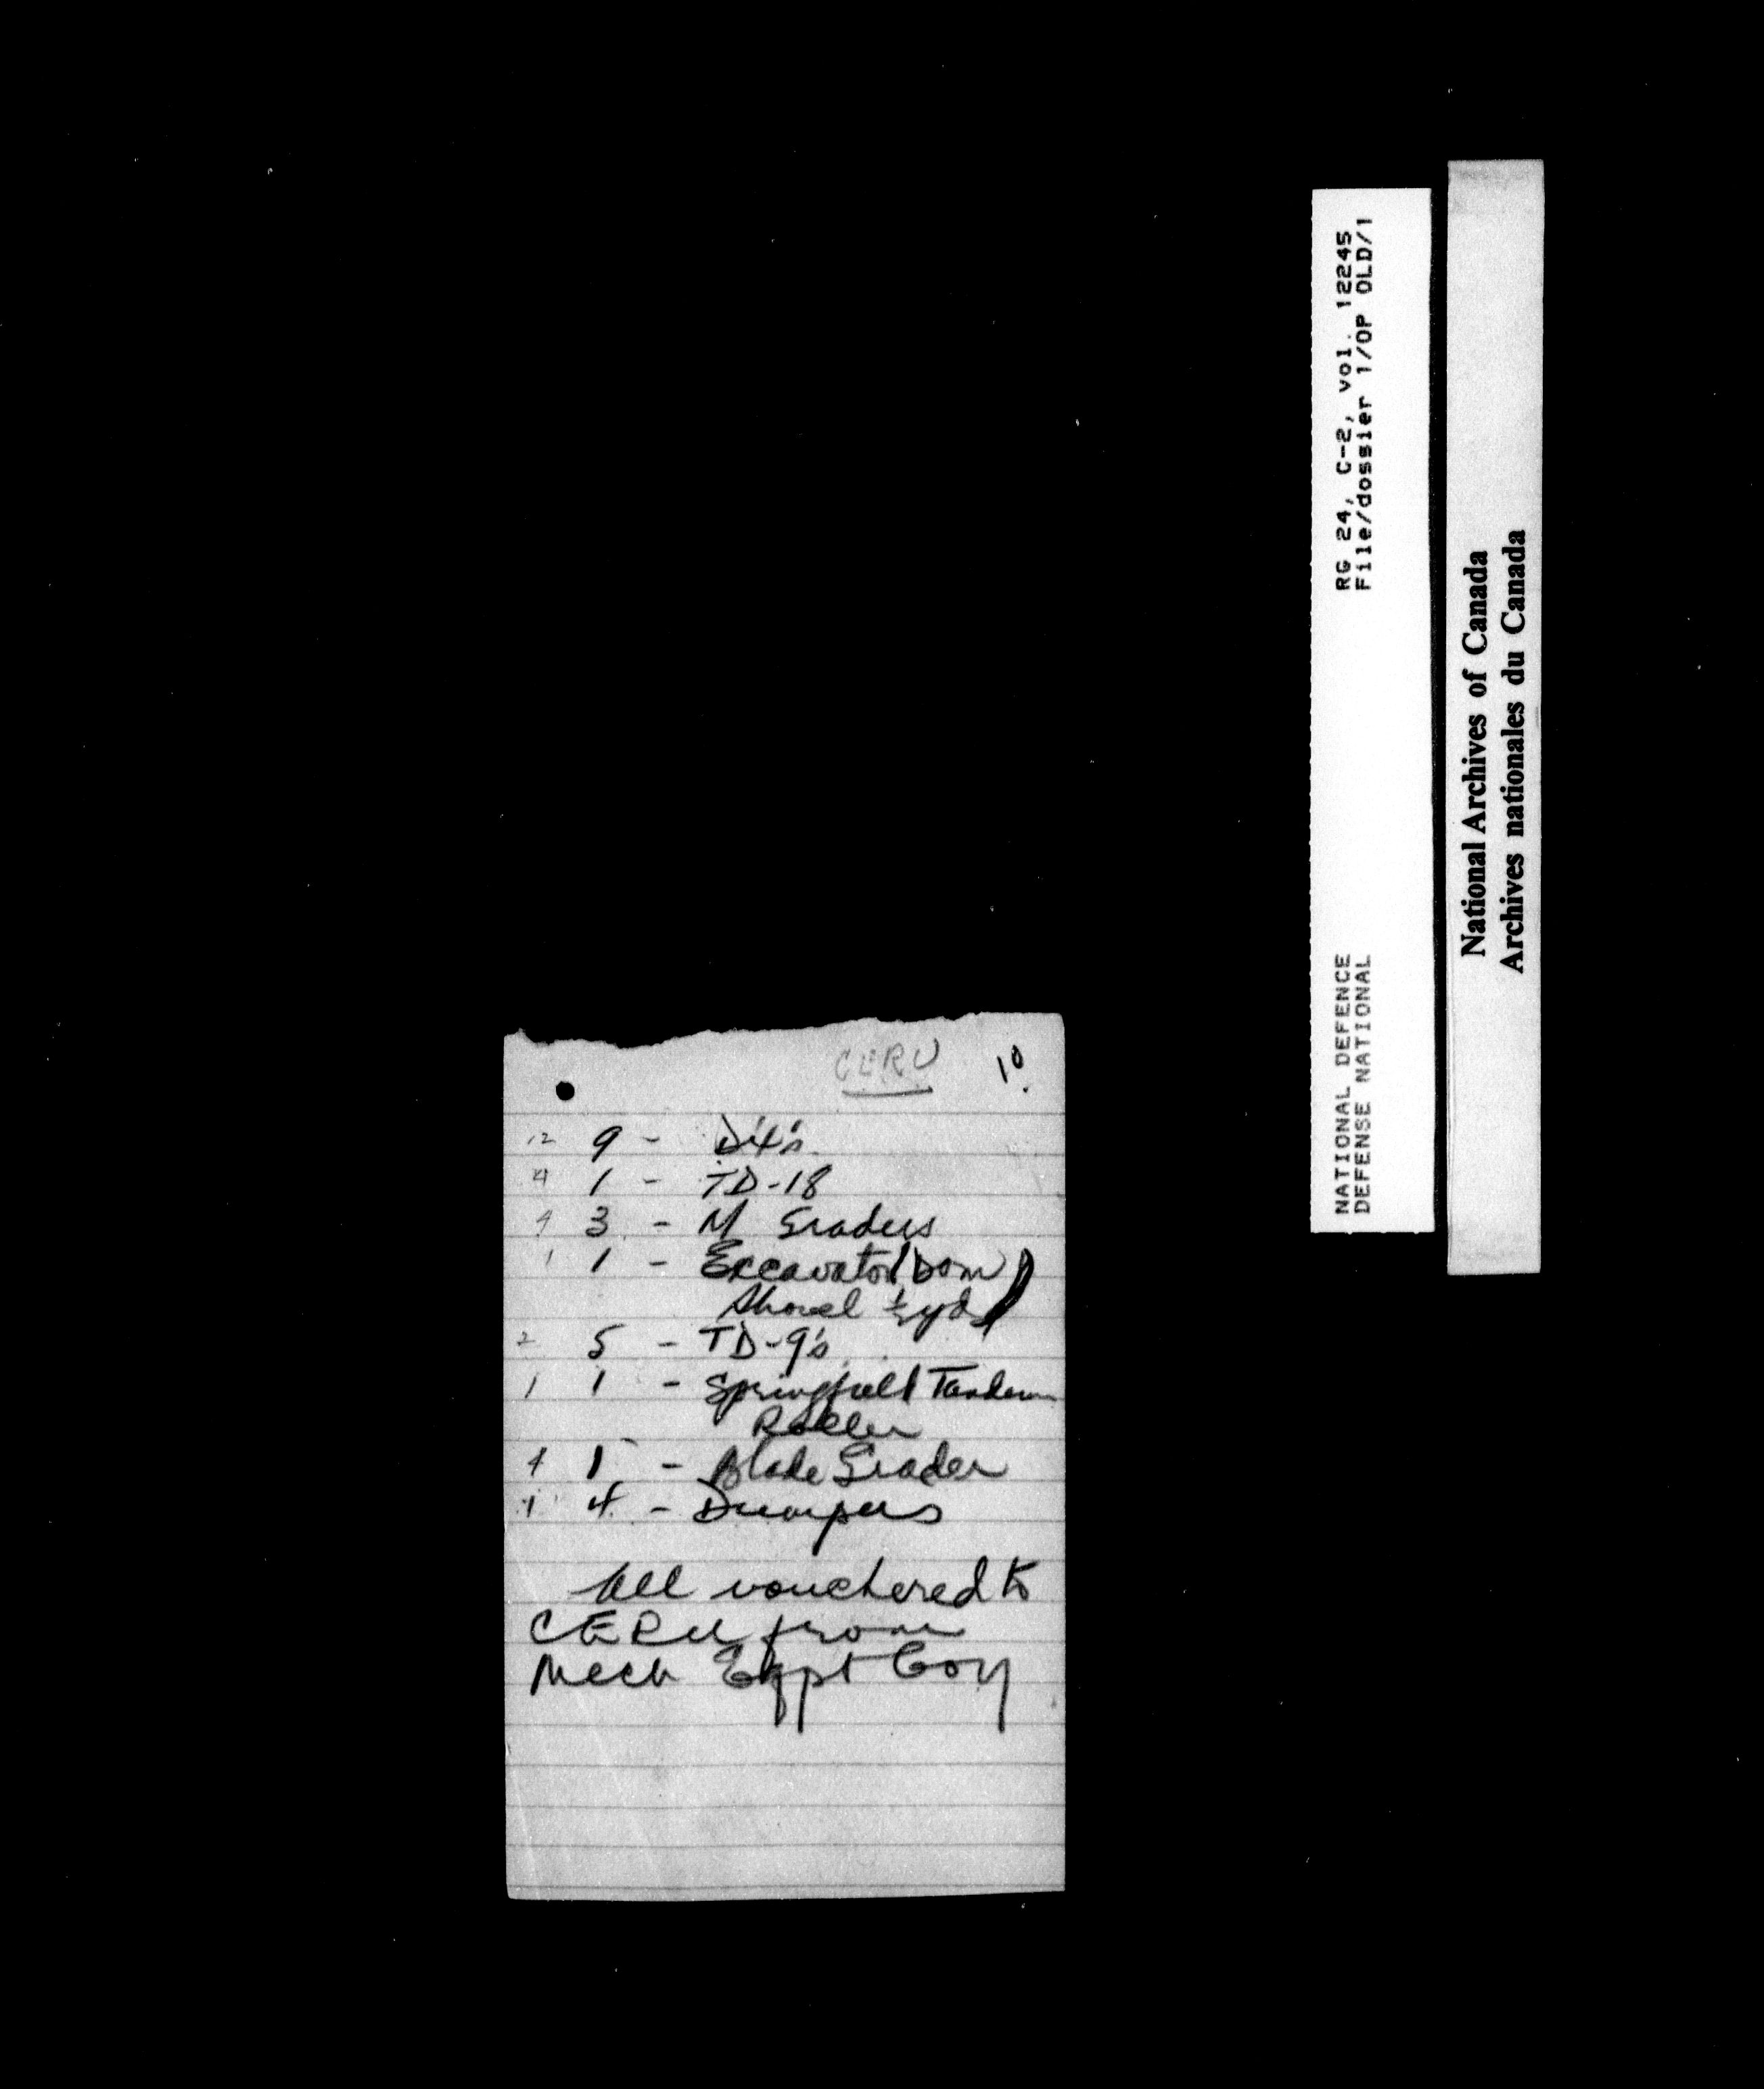 CERU 10.
12 9 - D4's
4 1 - TD-18
4 3 - M Graders
1 1 - Excavator (Dom
Shovel ½ yds)
2 5 - TD-9's
1 1 - Springfield Tandem
Roller
4 1 - Blade Grader
1 4 - Dumpers
All vouchered to
CERU from
Mech Eqpt Coy
RG 24, C-2, vol. 12245
File/dossier 1/OP OLD/1
NATIONAL DEFENCE
DEFENSE NATIONAL
National Archives of Canada
Archives nationales du Canada